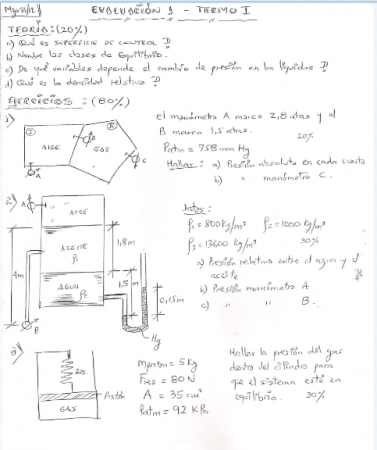 Mayo 31/12
EVALUACIÓN 1 - TERMO I
TEORIA: (20%)
a) Qué es SUPERFICIE DE CONTROL ?
b) Nombre las clases de Equilibrio.
c) De qué variables depende el cambio de presión en los líquidos ?
d) Qué es la densidad relativa ?
EJERCICIOS: (80%)
1)
I
AIRE
II
GAS
A
B
C
el manómetro A marca 2,8 atas y el
B marca 1,5 atas.
20%
Patm = 758 mm Hg
Hallar: a) Presión absoluta en cada cuarto
b) " manómetro C.
2)
A
AIRE
ACEITE
ρ1
AGUA
ρ2
4m
1,8m
1,5m
0,15m
B
Hg
Datos:
ρ1 = 800 Kg/m³ ρ2 = 1000 Kg/m³
ρ3 = 13600 Kg/m³ 30%
a) Presión relativa entre el agua y el
aceite
b) Presión manómetro A
c) " " B.
3)
Res.
Pistón
GAS
Mpistón = 5 kg
Fres = 80 N
A = 35 cm²
Patm = 92 KPa
Hallar la presión del gas
dentro del cilindro para
que el sistema esté en
equilibrio. 30%